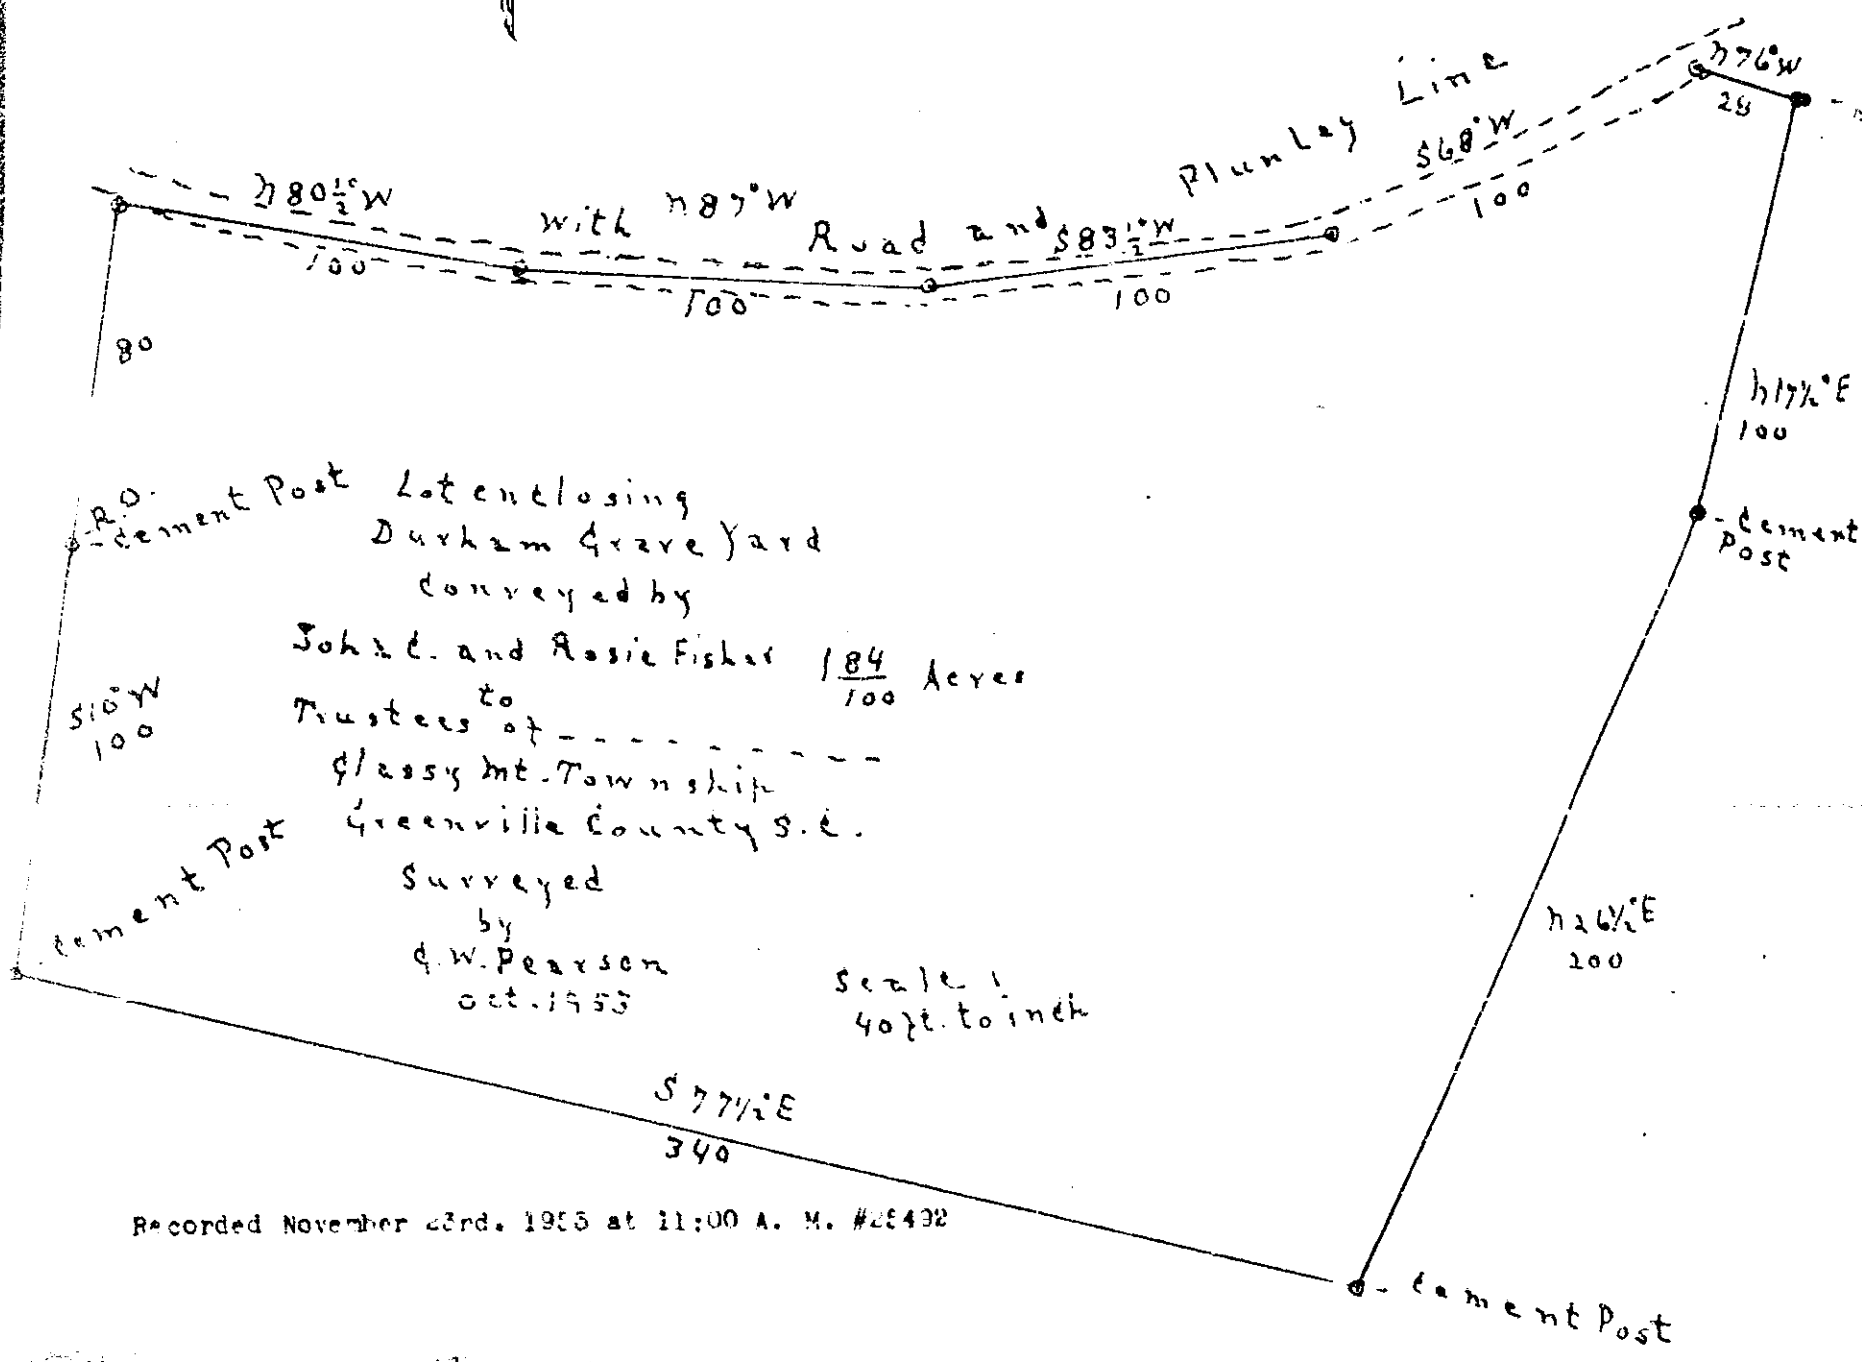 Plumley Line
n76°W
28
S68°W
100
n80½°W
100
with
n87°W
100
Road and
S83½°W
100
80
n17½°E
100
-Cement
Post
R.O.
-Cement Post
Lot enclosing
Durham Grave Yard
Conveyed by
John C. and Rosie Fisher
1 84/100 Acres
to
Trustees of - - - - - - - - -
Glassy Mt. Township
Greenville County S.C.
S10°W
100
Cement Post
Surveyed
by
G.W. Pearson
Oct. 1953
Scale !
40 ft. to inch
n26½°E
200
S77½°E
340
Recorded November 23rd. 1953 at 11:00 A. M.
- Cement Post